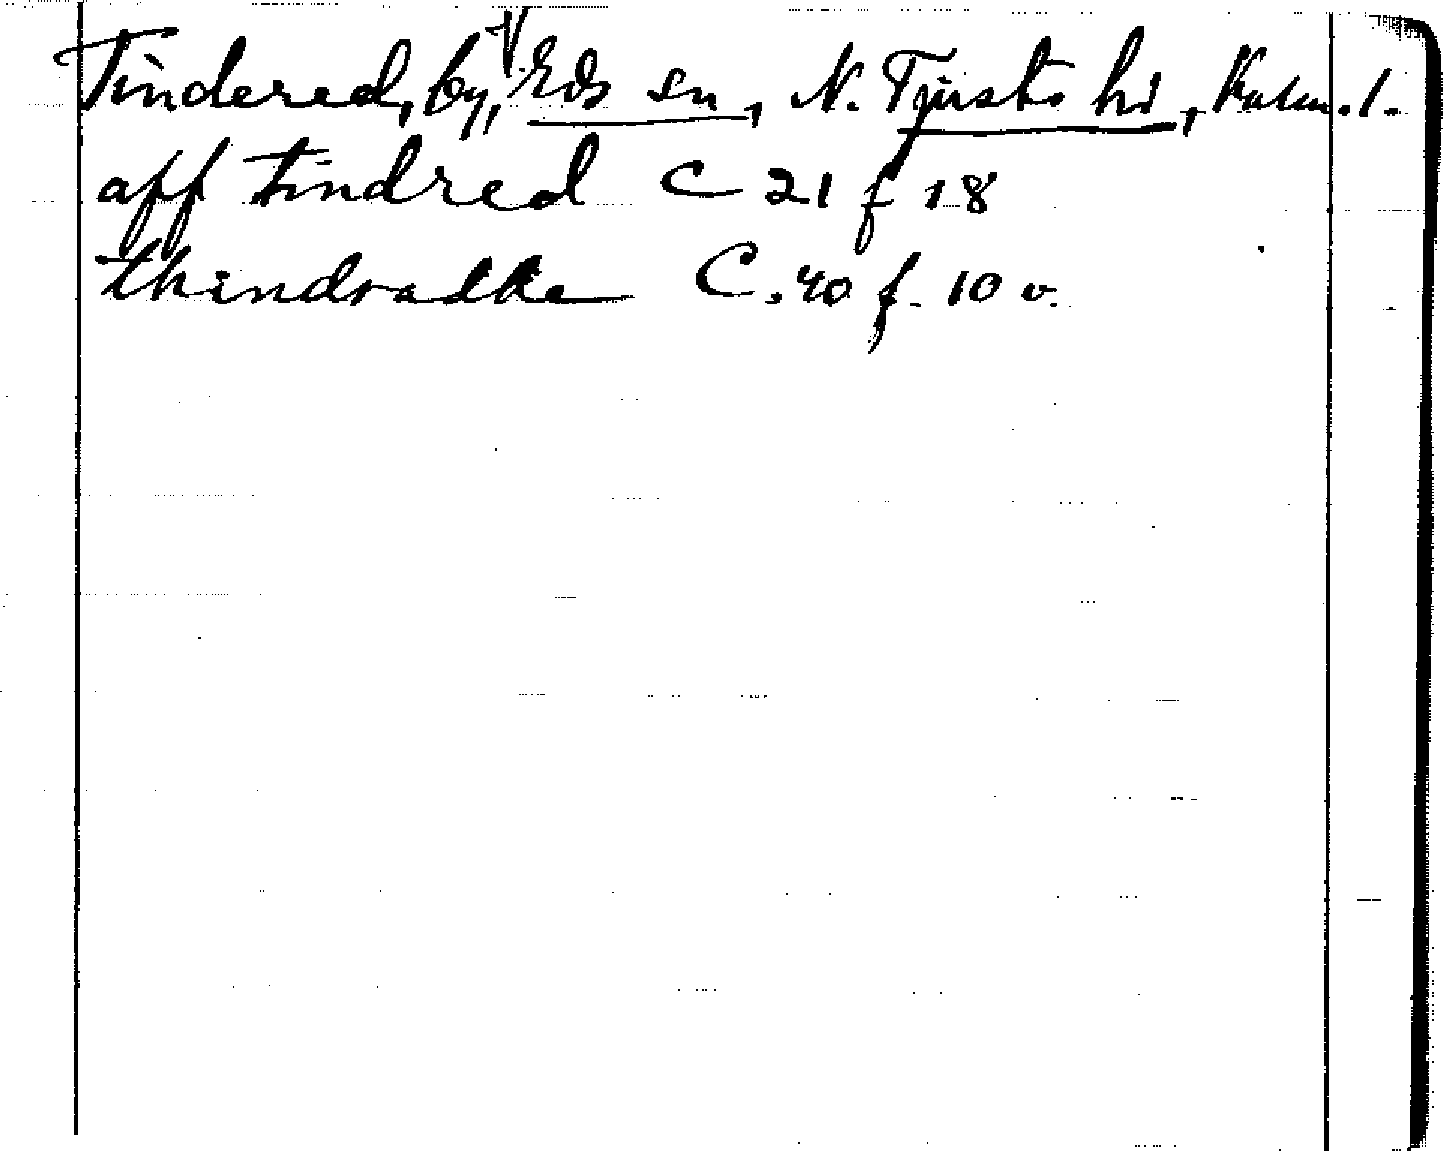 Tindered, by, V. Eds sn, N. Tjusts hd, Kalm. l.
aff tindred C 21 f 18
thindradhe C. 40 f. 10 v.